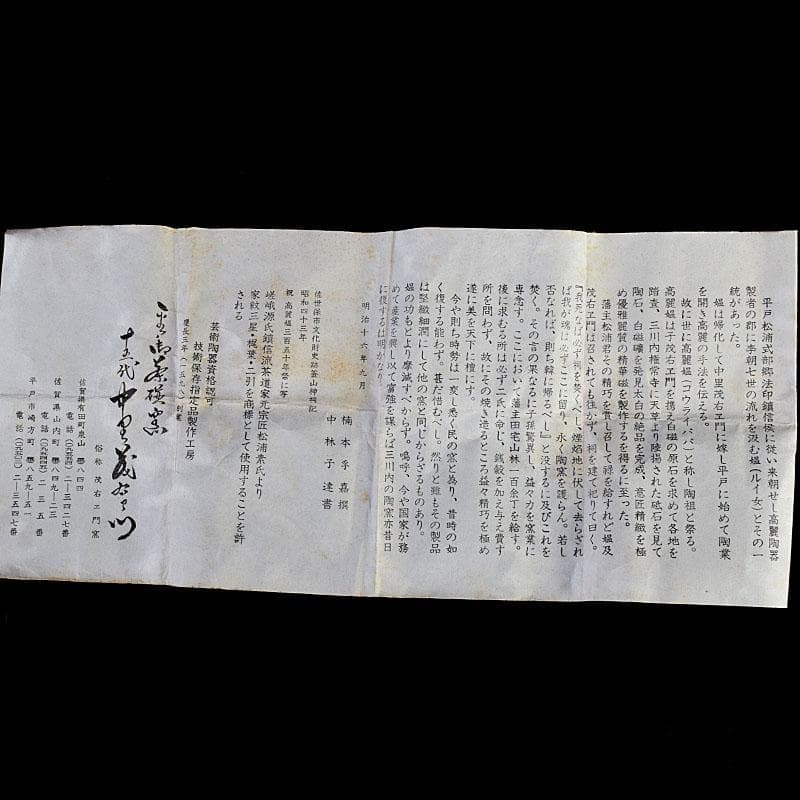 平戸松浦式部郷法印鎮信候に従い来朝せし高麗陶器
製者の郡に李朝七世の流れを汲む媼(ルイ女)とその一
統があった。
媼は帰化して中里茂右ヱ門に嫁し平戸に始めて陶業
を開き高麗の手法を伝える。
故に世に高麗媼(コウライババ)と称し陶祖と祭る。
高麗媼は子茂右ヱ門を携え白磁の原石を求めて各地を
踏査、三川内権常寺に天草より陸揚された砥石を見て
陶石、白磁礦を発見太白の絶品を完成、意匠精緻を極
め優雅麗質の精華磁を製作するを得るに至った。
藩主松浦君その精巧を賞し召して禄を給すれど媼及
茂右ヱ門は召されても往かず、祠を建て祀りて曰く。
『我死なば必ず祠を焚くべし、煙焰地に伏して去らざれ
ば我が魂は必ずここに留り、永く陶窯を護らん。若し
否なれば、則ち韓に帰るべし』と没するに及びこれを
焚く。その言の果なるに子孫驚異し、益々力を窯業に
専念す。ここにおいて藩主田宅山林一百余丁を給す。
後に求むる所は必ず二氏に命じ、銭穀を加え与え費す
所を問わず、故にその焼き造るところ益々精巧を極め
遂に美を天下に檀にす。
今や則ち時勢は一変し悉く民の窯と為り、昔時の如
く復する能わず。甚だ惜むべし。然りと雖もその製品
は堅緻細潤にして他の窯と同じからざるものあり。
媼の功もとより摩滅すべからず。嗚呼、今や国家が務
めて産業を興し以て富強を謀らば三川内の陶窯亦昔日
に復するは明かなり。
明治十六年九月
楠本孚嘉撰
中林子達書
佐世保市文化財史跡釜山神碑記
昭和四十三年
祝 高麗媼三百五十年祭に写
嵯峨源氏鎮信流茶道家元宗匠松浦素氏より
家紋三星・梶葉・二引を商標として使用することを許
される
芸術陶器資格認可
技術保存指定品製作工房
慶長三年(一五九八)創業
平戸御茶碗窯
十五代 中里茂右ヱ門
俗称 茂右ヱ門窯
佐賀県有田町泉山 〠八四四
佐賀県山内町 〠八四九―二三
平戸市崎方町 〠八五九―五一